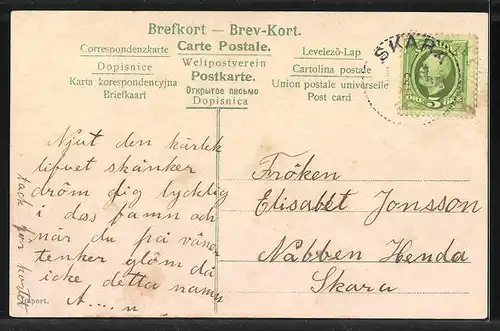 Brefkort — Brev-Kort.
Correspondenzkarte
Carte Postale.
Levelező-Lap
Dopisnice
Weltpostverein
Cartolina postale
Karta korespondencyjna
Postkarte.
Union postale universelle
Briefkaart
Открытое письмо
Post card
Dopisnica
SKARA
5 ÖRE
Njut den kärlek
lifvet skänker
dröm dig lycklig
i das famn och
när du på vänner
tenker glöm då
icke detta namn
A.....n
tack för kortet
Import.
Fröken
Elisabet Jonsson
Nabben Henda
Skara